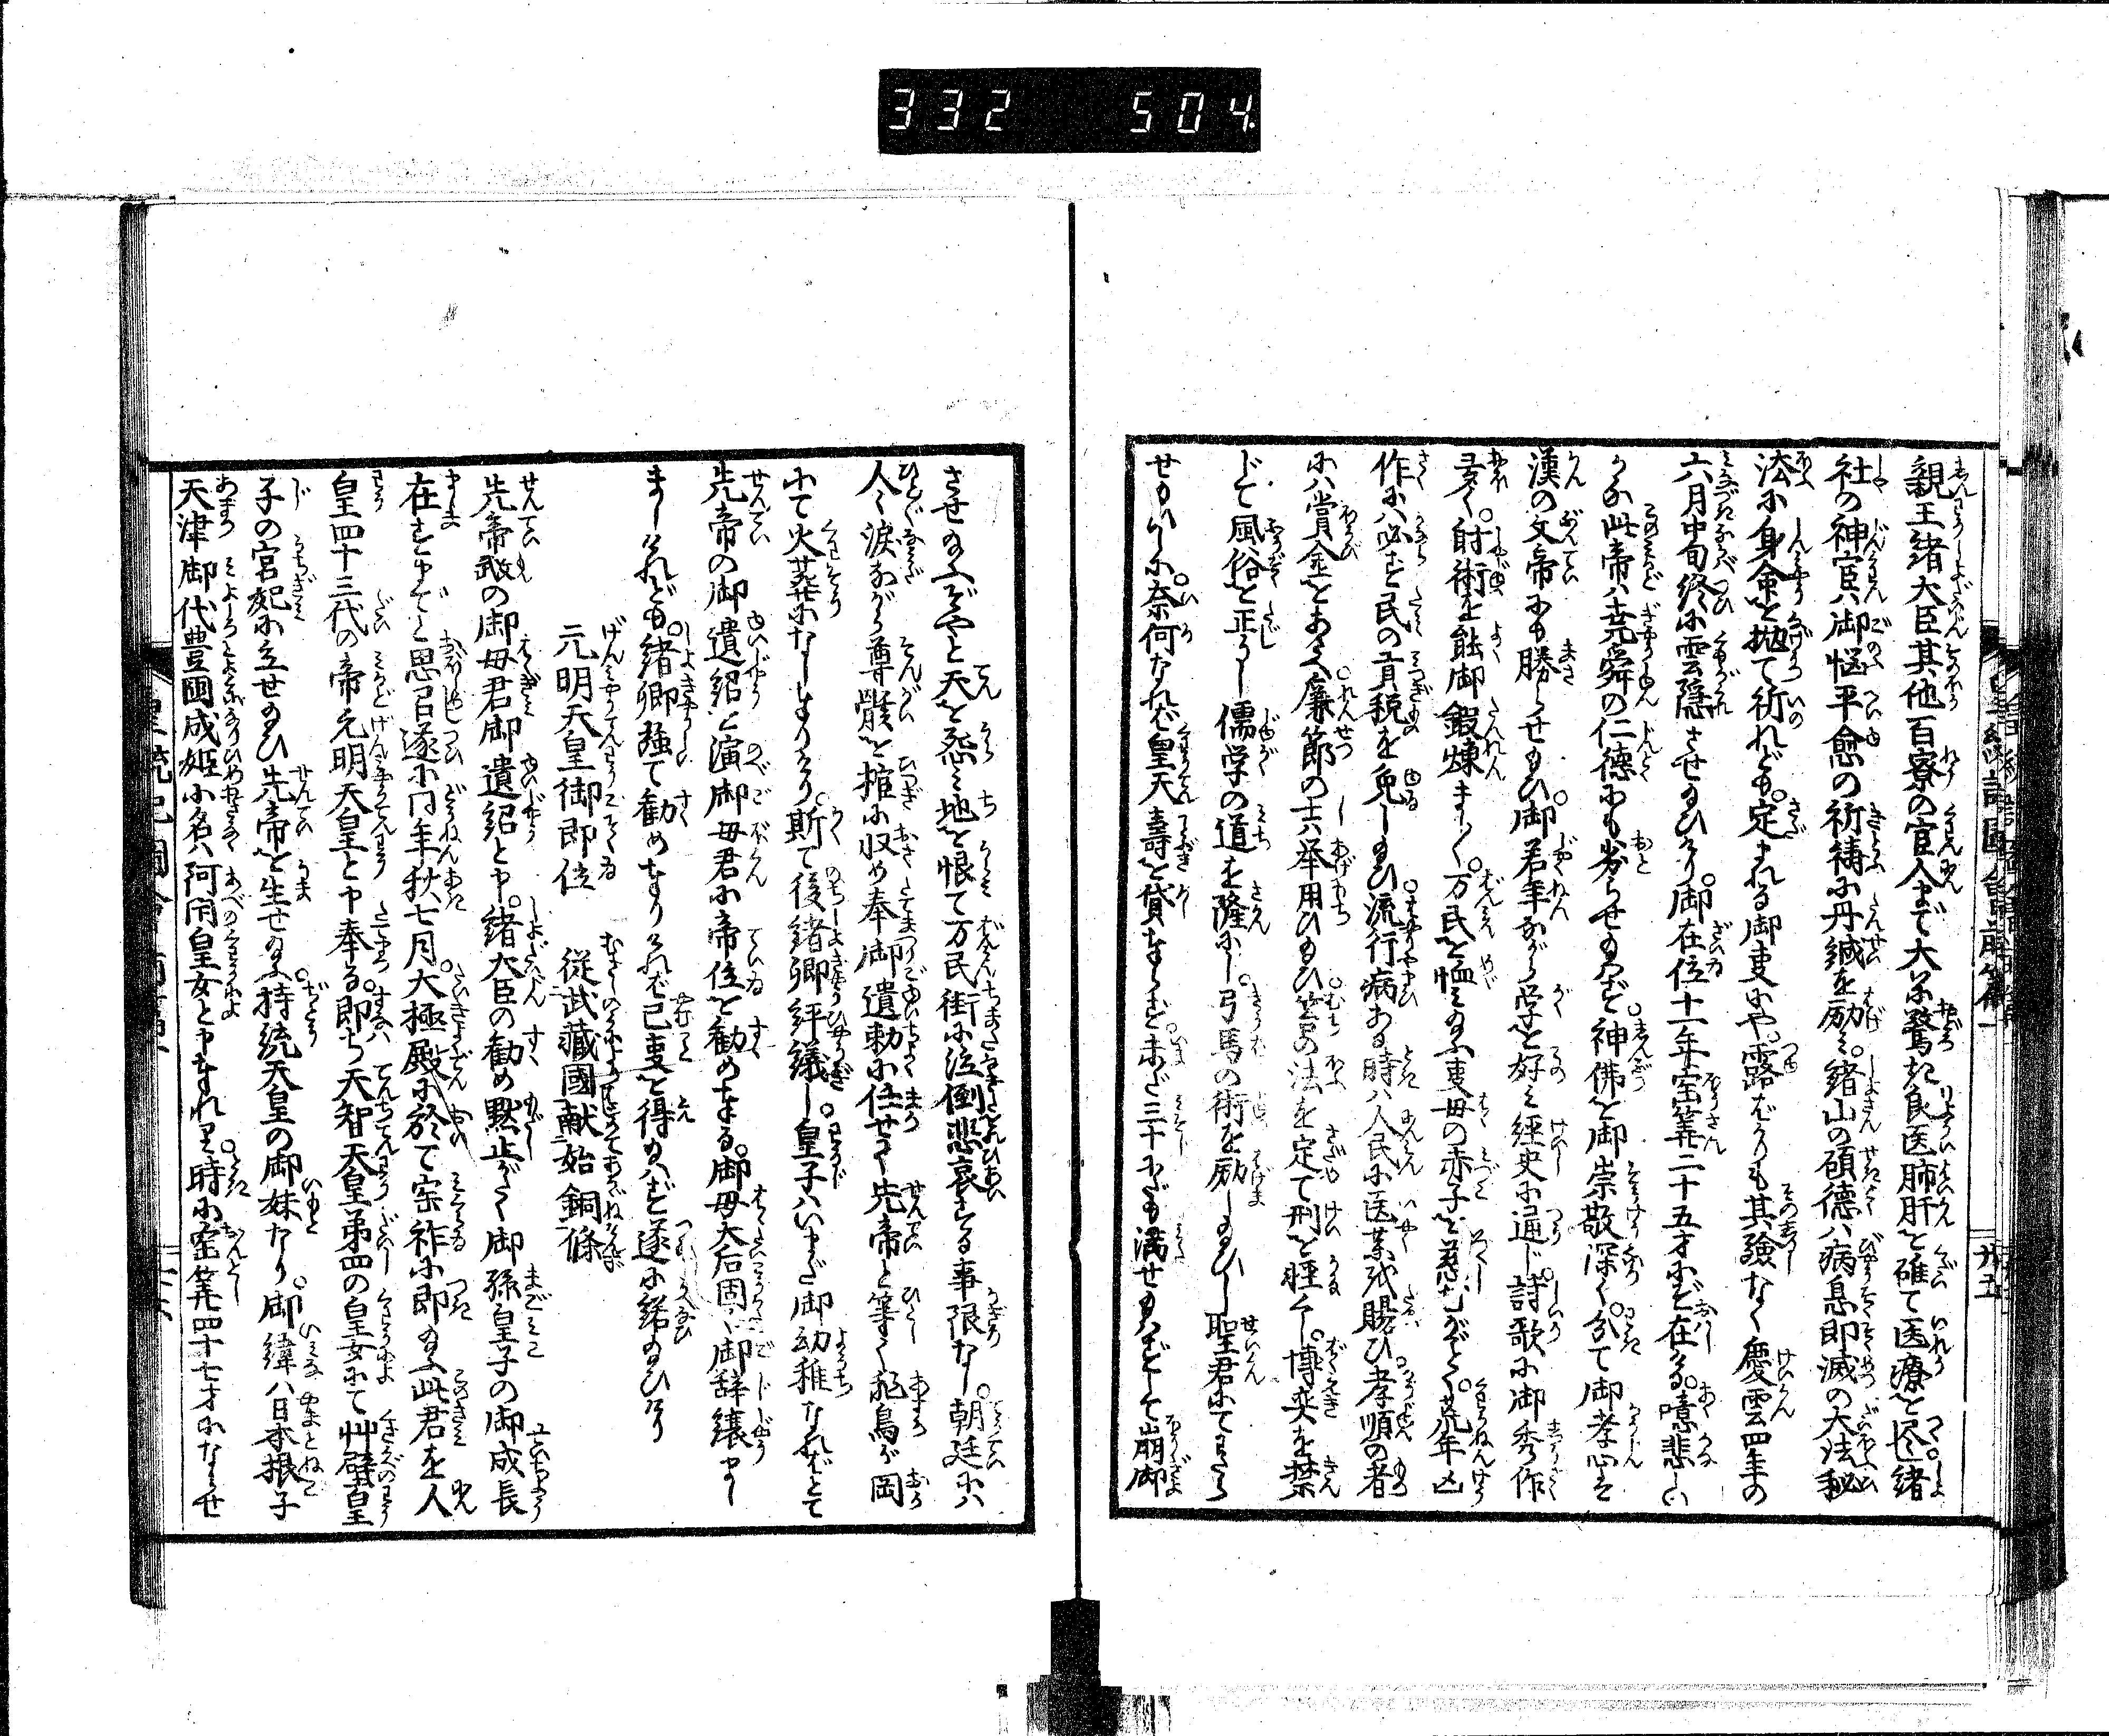 332 504
親王緒大臣其他百寮の官人まで大に驚き良医肺肝を碓て医療を尽緒
社の神官ハ御悩平愈の祈祷に丹誠を励ミ。緒山の碩徳ハ病息即滅の大法秘
法に身命を抛て祈れども。定まれる御吏にや。露ばかりも其験なく慶雲四年の
六月中旬終に雲隠させ給ひけり。御在位十一年宝算二十五才にぞ在ける。噫悲しい
かな此帝ハ堯舜の仁徳にも劣らせ給はず。神佛を御崇敬深く。分て御孝心ハ
漢の文帝にも勝らせ給ひ。御若年ながら学を好ミ経史に通じ。詩歌に御秀作
多く。射術を能御鍛煉まし〳〵。万民を恤ミ給ふ事母の赤子を慈むがごとく。荒年凶
作にハ必ず民の貢税を免し給ひ。流行病ある時ハ人民に医薬を賜ひ。孝順の者
にハ賞金をあたへ。廉節の士ハ挙用ひ給ひ。笞の法を定て刑を軽くし。博奕を禁
じて風俗を正うし儒学の道を隆にし。弓馬の術を励し給ひし聖君にてわたら
せ給ひしに。奈何なれバ皇天壽を貸まゐらせず。未だ三十にだも満せ給はずして崩御
させ給ふぞやと天を怨ミ地を恨て万民街に泣倒悲哀する事限なし。朝廷にハ
人〻涙ながら尊骸を棺に収め奉御遺勅に任せて先帝と等く飛鳥が岡
にて火葬になしまゐらせけり。斯て後緒卿評議し。皇子ハいまだ御幼稚なれバとて
先帝の御遺紹を演御母君に帝位を勧め奉る。御母大后固く御辞譲まし
ましけれども。緒卿強て勧め奉りければ已事を得給はず遂に緒給ひけり
元明天皇御即位　従武藏國献始銅條
先帝文武の御母君御遺紹と申。緒大臣の勧め黙止がたく御孫皇子の御成長
在までと思召遂に同年秋七月。大極殿に於て宝祚に即給ふ此君を人
皇四十三代の帝元明天皇と申奉る。即ち天智天皇第四の皇女にて艸壁皇
子の宮妃に立せ給ひ先帝を生せ給ふ。持統天皇の御妹なり。御緯ハ日本根子
天津御代豊国成姫小名ハ阿閇皇女と申奉れり。時に宝算四十七才にならせ